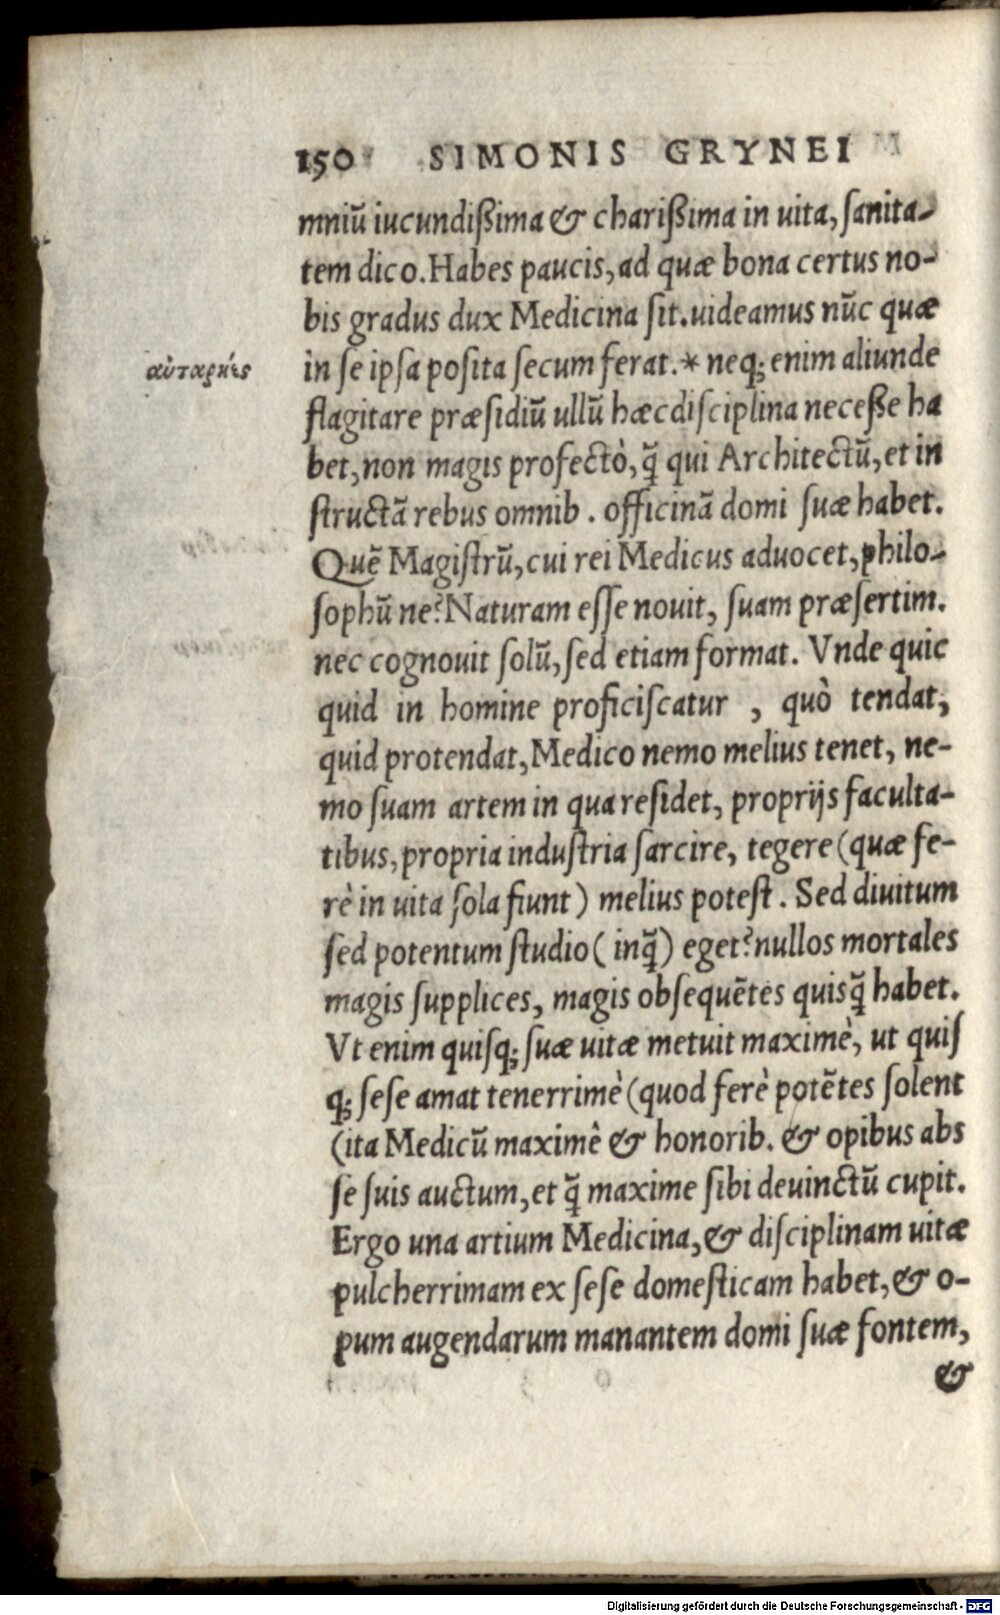 150 SIMONIS GRYNEI
mniũ iucundißima & charißima in uita, ſanita-
tem dico. Habes paucis, ad quæ bona certus no-
bis gradus dux Medicina ſit. uideamus nũc quæ
αὐταρκής
in ſe ipſa poſita ſecum ferat. * neq; enim aliunde
flagitare præſidiũ ullũ hæc diſciplina neceße ha
bet, non magis profectò, q̃ qui Architectũ, et in
ſtructã rebus omnib. officinã domi ſuæ habet.
Quẽ Magiſtrũ, cui rei Medicus aduocet, philo-
ſophũ ne? Naturam eſſe nouit, ſuam præſertim.
nec cognouit ſolũ, ſed etiam format. Vnde quic
quid in homine proficiſcatur , quò tendat,
quid protendat, Medico nemo melius tenet, ne-
mo ſuam artem in qua reſidet, proprijs faculta-
tibus, propria induſtria ſarcire, tegere (quæ fe-
rè in uita ſola fiunt) melius poteſt. Sed diuitum
ſed potentum ſtudio (inq̃) eget? nullos mortales
magis ſupplices, magis obſequẽtes quisq̃ habet.
Vt enim quiſq; ſuæ uitæ metuit maximè, ut quiſ
q; ſeſe amat tenerrimè (quod ferè potẽtes ſolent
(ita Medicũ maximè & honorib. & opibus abs
ſe ſuis auctum, et q̃ maxime ſibi deuinctũ cupit.
Ergo una artium Medicina, & diſciplinam uitæ
pulcherrimam ex ſeſe domeſticam habet, & o-
pum augendarum manantem domi ſuæ fontem,
&
Digitalisierung gefördert durch die Deutsche Forschungsgemeinschaft - DFG